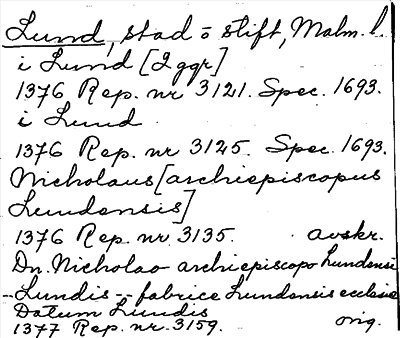 Lund, stad o stift, Malm. l.
i Lund [2 ggr]
1376 Rep. nr 3121. Spec. 1693.
i Lund
1376 Rep. nr 3125. Spec. 1693.
Nicholaus [archiepiscopus
Lundensis]
1376 Rep. nr 3135. avskr.
Dn. Nicholao archiepiscopo Lundensi
-Lundis-- fabrice Lundensis ecclesie
Datum Lundis
1377 Rep. nr. 3159. orig.